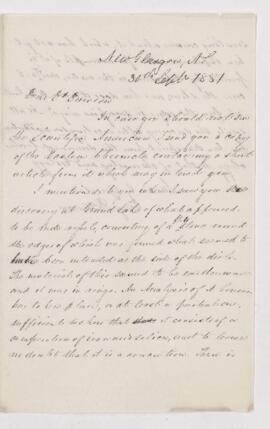 New Glasgow, N.S.
30th Sept 1881
Dear Dr Dawson
In case you should not see
the Scientific American I send you a copy
of the Eastern Chronicle containing a short
article from it which may interest you.
I mentioned to you when I saw you the
discovery at Grand Lake of what appeared
to be rude, consisting of a stone round
the edge of which was found what seemed to
have been intended as the of the dish.
The material of this seemed to be earthenware
and it was in rings. An Analysis of it
has to take place, or at least a partial one,
sufficient to show that it consists of a
composition of iron and silica, and to leave
no doubt that it is a concretion. There is